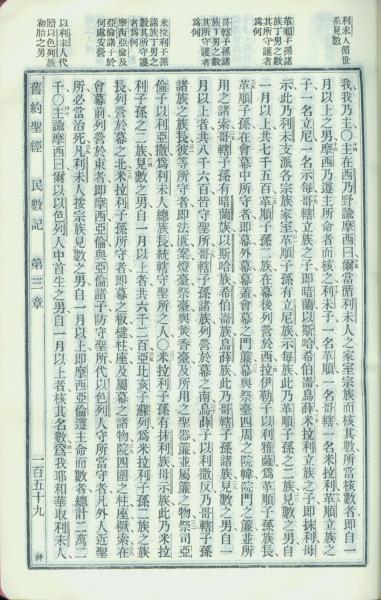 利未人循世系見數
革順子孫諸族丁男之數其所守護者爲何
哥轄子孫諸族丁男之數其所守護者爲何
米拉利子孫諸族丁男之數其所守護者爲何
摩西亞倫及亞倫諸子於何處安營
以利未人代贖以色列族初胎之男
我我乃主○主在西乃野諭摩西曰爾當循利未人之家室宗族而核其數所當核數者即自一
月以上之男摩西乃遵主所命者而核之利未子一名革順一名哥轄一名米拉利革順立族之
子一名立尼一名示每哥轄立族之子即暗蘭以斯哈希伯崙烏薛米拉利立族之子即抹利母
示此乃利未支派各宗族家室革順子孫有立尼族示每族此乃革順子孫之二族見數之男自
一月以上共七千五百革順子孫二族在幕後列營於西拉伊勒子以利雅薩爲革順子孫族長
革順子孫在會幕中所守者即幕外幕幕蓋會幕之門簾幕與祭臺四周之院幃院門之簾並所
用之諸索哥轄子孫有暗蘭族以斯哈族希伯崙族烏薛族此乃哥轄子孫諸族見數之男自一
月以上者共八千六百皆守聖所哥轄子孫諸族列營於幕之南烏薛子以利撒反乃哥轄子孫
諸族之族長彼等所守者即法匱案燈臺祭臺與焚香臺及所用之聖器簾並屬簾之物祭司亞
倫子以利亞撒爲利未人總族長統轄守聖所之人○米拉利子孫有抹利族母示族此乃米拉
利子孫之二族見數之男自一月以上者共六千二百亞比亥子蘇列爲米拉利子孫二族之族
長列營於幕之北米拉利子孫所守者即幕之板楗柱座及屬幕之諸物院四圍之柱座橛索在
會幕前列營於東者即摩西亞倫與亞倫諸子防守聖所代以色列人守所當守者凡外人近聖
所必當治死凡利未人按宗族見數之男自一月以上即摩西亞倫遵主命而數者總計二萬二
千○主諭摩西曰爾以以色列人中首生之男自一月以上者核其名數爲我耶和華取利未人
舊約聖經　民數記　第三章　一百五十九　神